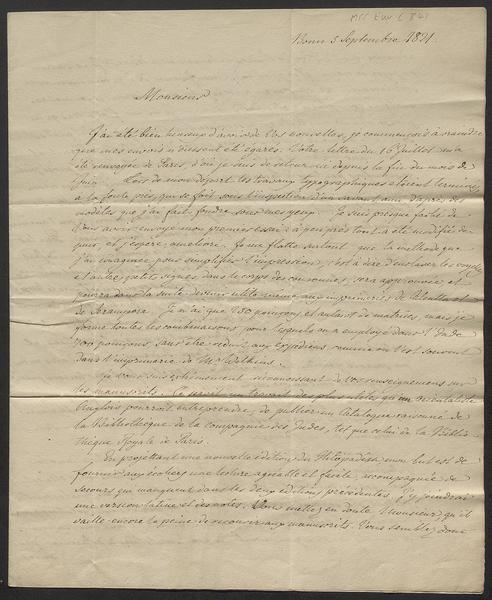 Bonn 3 Septembre 1821.
Monsieur
J'ai été bien heureux d'avoir de Vos nouvelles, je commençois à craindre
que mes envois ne fussent égarés. Votre lettre du 16 Juillet m'a
été renvoyée de Paris, d'où je suis de retour ici depuis la fin du mois de
Juin. Lors de mon départ les travaux typographiques étoient terminés
à la fonte près, qui se fait sous l'inspection d'un savant ami d'après des
modèles que j'ai fait fondre sous mes yeux. Je suis presque fâché de
Vous avoir envoyé mon premier essai: à peu près tout a été modifié de-
puis, et j'espère, amélioré. Je me flatte surtout que la méthode que
j'ai imaginée pour simplifier l'impression, c'est à dire d'enchasser les voyelles
et autres petits signes dans le corps des consonnes, sera approuvée et
pourra dans la suite devenir utile même aux imprimeries de Calcutta et
de Serampore. Je n'ai que 230 poinçons et autant de matrices, mais je
forme toutes les combinaisons pour lesquels on a employé dans l'Inde
700 poinçons, sans être réduit aux expédiens comme on l'est souvent
dans l'imprimerie de Mr Wilkins.
Je Vous suis extrêmement reconnoissant de vos renseignemens sur
les manuscrits. Ce seroit un travail des plus utiles qu'un orientaliste
Anglois pourroit entreprendre, de publier un Catalogue raisonné de
la Bibliothèque de la compagnie des Indes, tel que celui de la Biblio-
thèque Royale de Paris.
En projettant une nouvelle édition du Hitopadesa mon but est de
fournir aux écoliers une lecture agréable et facile, accompagnée de
secours qui manquent dans les deux éditions précédentes, j'y joindrai
une version latine et des notes. Vous mettez en doute Monsieur, qu'il
vaille encore la peine de recourir aux manuscrits. Vous semblez donc